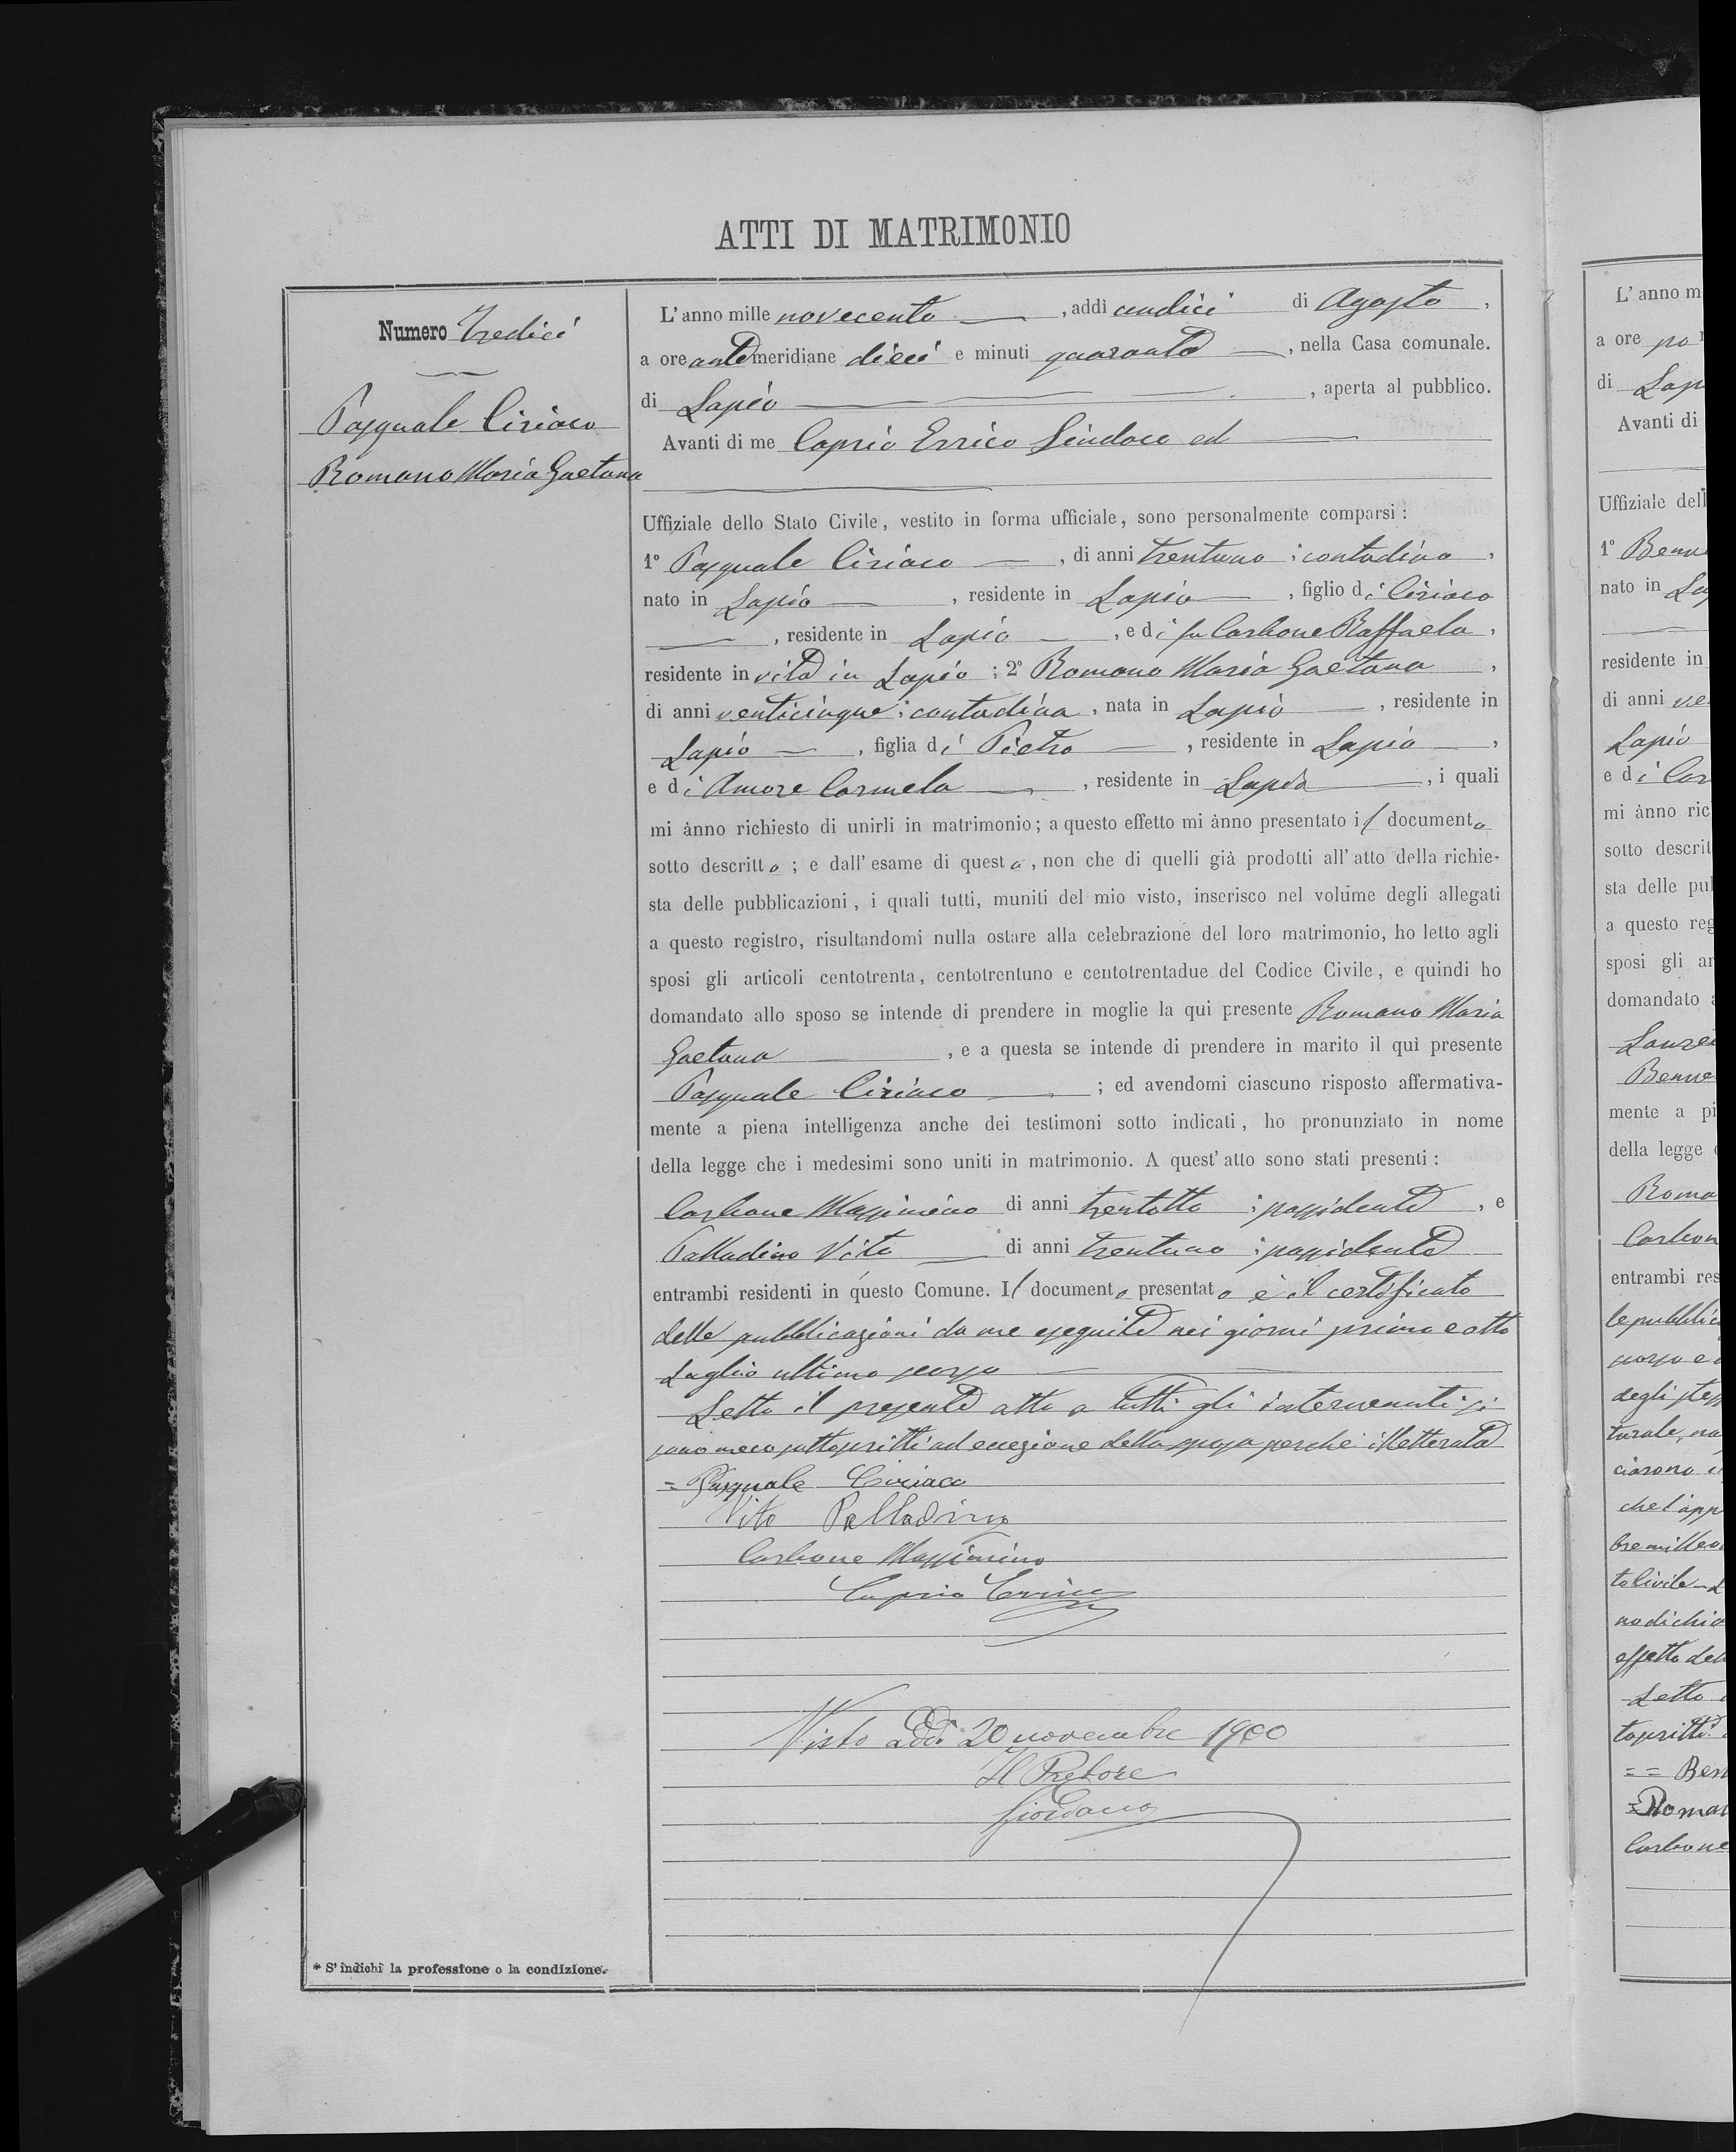 ATTI DI MATRIMONIO
Numero Tredici
Pasquale Ciriaco
Romano Maria Gaetana
L'anno mille novecento, addì undici di Agosto,
a ore antemeridiane dieci e minuti quaranta, nella Casa comunale.
di Lapio, aperta al pubblico.
Avanti di me Caprio Errico Sindaco ed
Uffiziale dello Stato Civile, vestito in forma ufficiale, sono personalmente comparsi:
1° Pasquale Ciriaco, di anni trentuno; contadino,
nato in Lapio, residente in Lapio, figlio di Ciriaco
, residente in Lapio, e di fu Carbone Raffaela,
residente in vita in Lapio; 2° Romano Maria Gaetana,
di anni venticinque; contadina, nata in Lapio, residente in
Lapio, figlia di Pietro, residente in Lapio,
e di Amore Carmela, residente in Lapio, i quali
mi ànno richiesto di unirli in matrimonio; a questo effetto mi ànno presentato il documento
sotto descritto; e dall'esame di questo, non che di quelli già prodotti all'atto della richie-
sta delle pubblicazioni, i quali tutti, muniti del mio visto, inserisco nel volume degli allegati
a questo registro, risultandomi nulla ostare alla celebrazione del loro matrimonio, ho letto agli
sposi gli articoli centotrenta, centotrentuno e centotrentadue del Codice Civile, e quindi ho
domandato allo sposo se intende di prendere in moglie la qui presente Romano Maria
Gaetana, e a questa se intende di prendere in marito il quì presente
Pasquale Ciriaco; ed avendomi ciascuno risposto affermativa-
mente a piena intelligenza anche dei testimoni sotto indicati, ho pronunziato in nome
della legge che i medesimi sono uniti in matrimonio. A quest'atto sono stati presenti:
Carbone Massimino di anni trentotto; possidente, e
Palladino Vito di anni trentuno; possidente
entrambi residenti in questo Comune. Il documento presentato è il certificato
delle pubblicazioni da me eseguite nei giorni primo e otto
Luglio ultimo scorso
Letto il presente atto a tutti gli intervenuti si
sono meco sottoscritti ad eccezione della sposa perchè illetterata
= Pasquale Ciriaco
Vito Palladino
Carbone Massimino
Caprio Errico
Visto addì 20 novembre 1900
Il Pretore
Giordano
* S'indichi la professione o la condizione.
L'anno m
a ore
di Lap
Avanti di
Uffiziale dell
1°
nato in La
residente in
di anni ve
Lapio
e di Car
mi ànno ric
sotto descrit
sta delle pul
a questo reg
sposi gli ar
domandato
mente a pi
della legge
Roma
Carbon
entrambi res
le pubblic
scorso e
degli stess
turale, na
ciarono
che l'app
bre mille
to Civile
no dichia
effetto del
Letto
toscritti
= = Ben
= Roman
Carbone